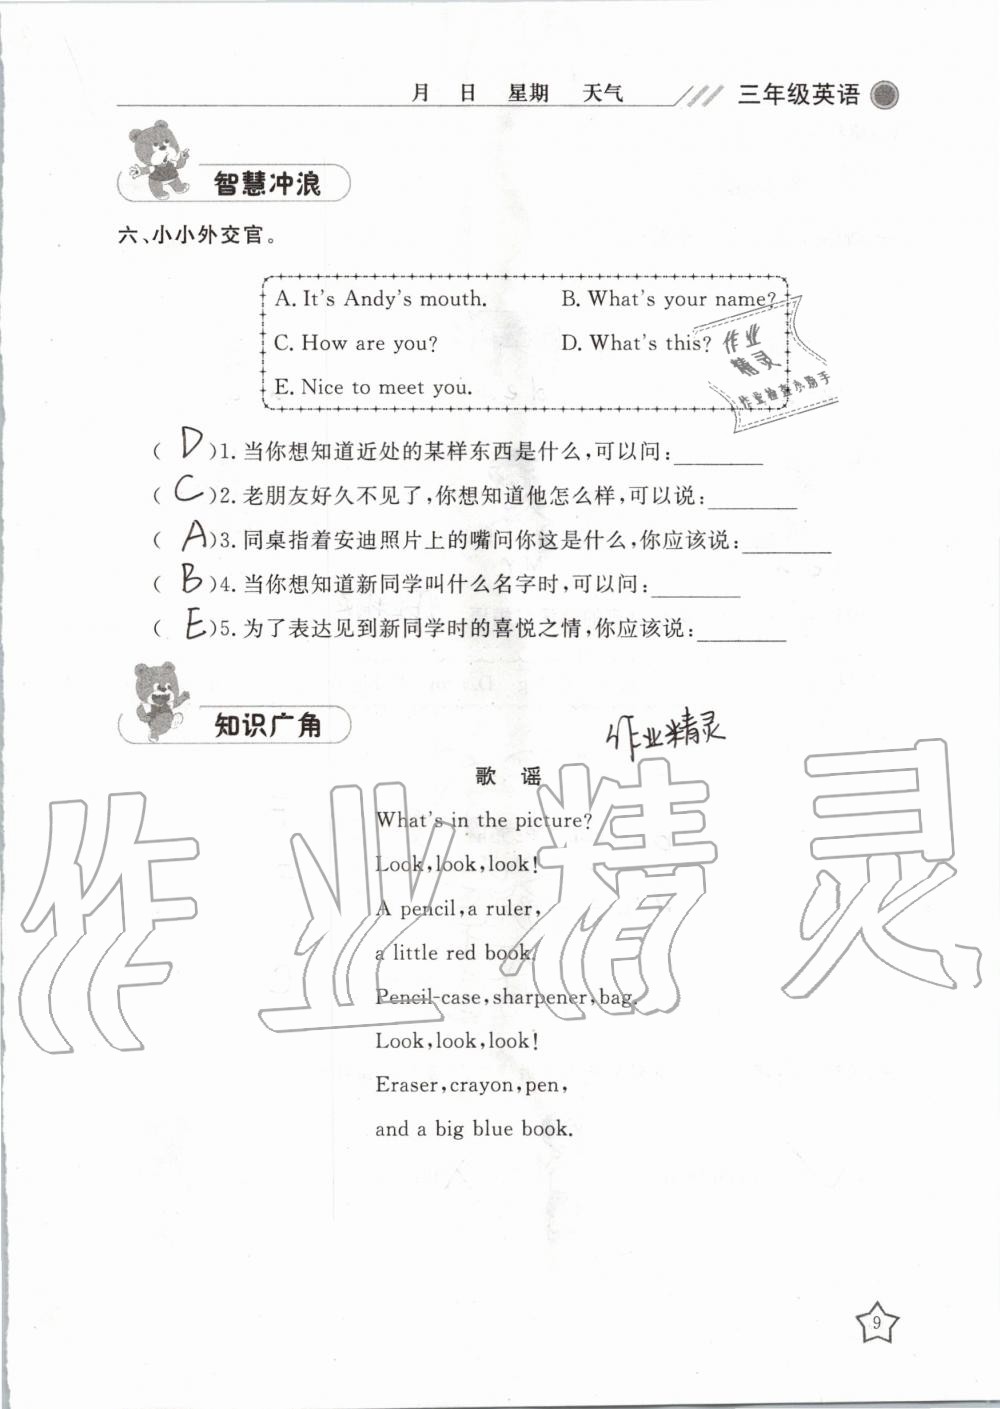 月 日 星期 天气 三年级英语
智慧冲浪
六、小小外交官。
A. It's Andy's mouth. B. What's your name?
C. How are you? D. What's this?
E. Nice to meet you.
作业
精灵
作业检查小助手
( D )1. 当你想知道近处的某样东西是什么,可以问:________
( C )2. 老朋友好久不见了,你想知道他怎么样,可以说:________
( A )3. 同桌指着安迪照片上的嘴问你这是什么,你应该说:________
( B )4. 当你想知道新同学叫什么名字时,可以问:________
( E )5. 为了表达见到新同学时的喜悦之情,你应该说:________
知识广角
作业精灵
歌 谣
What's in the picture?
Look, look, look!
A pencil, a ruler,
a little red book.
Pencil-case, sharpener, bag.
Look, look, look!
Eraser, crayon, pen,
and a big blue book.
作业精灵
9